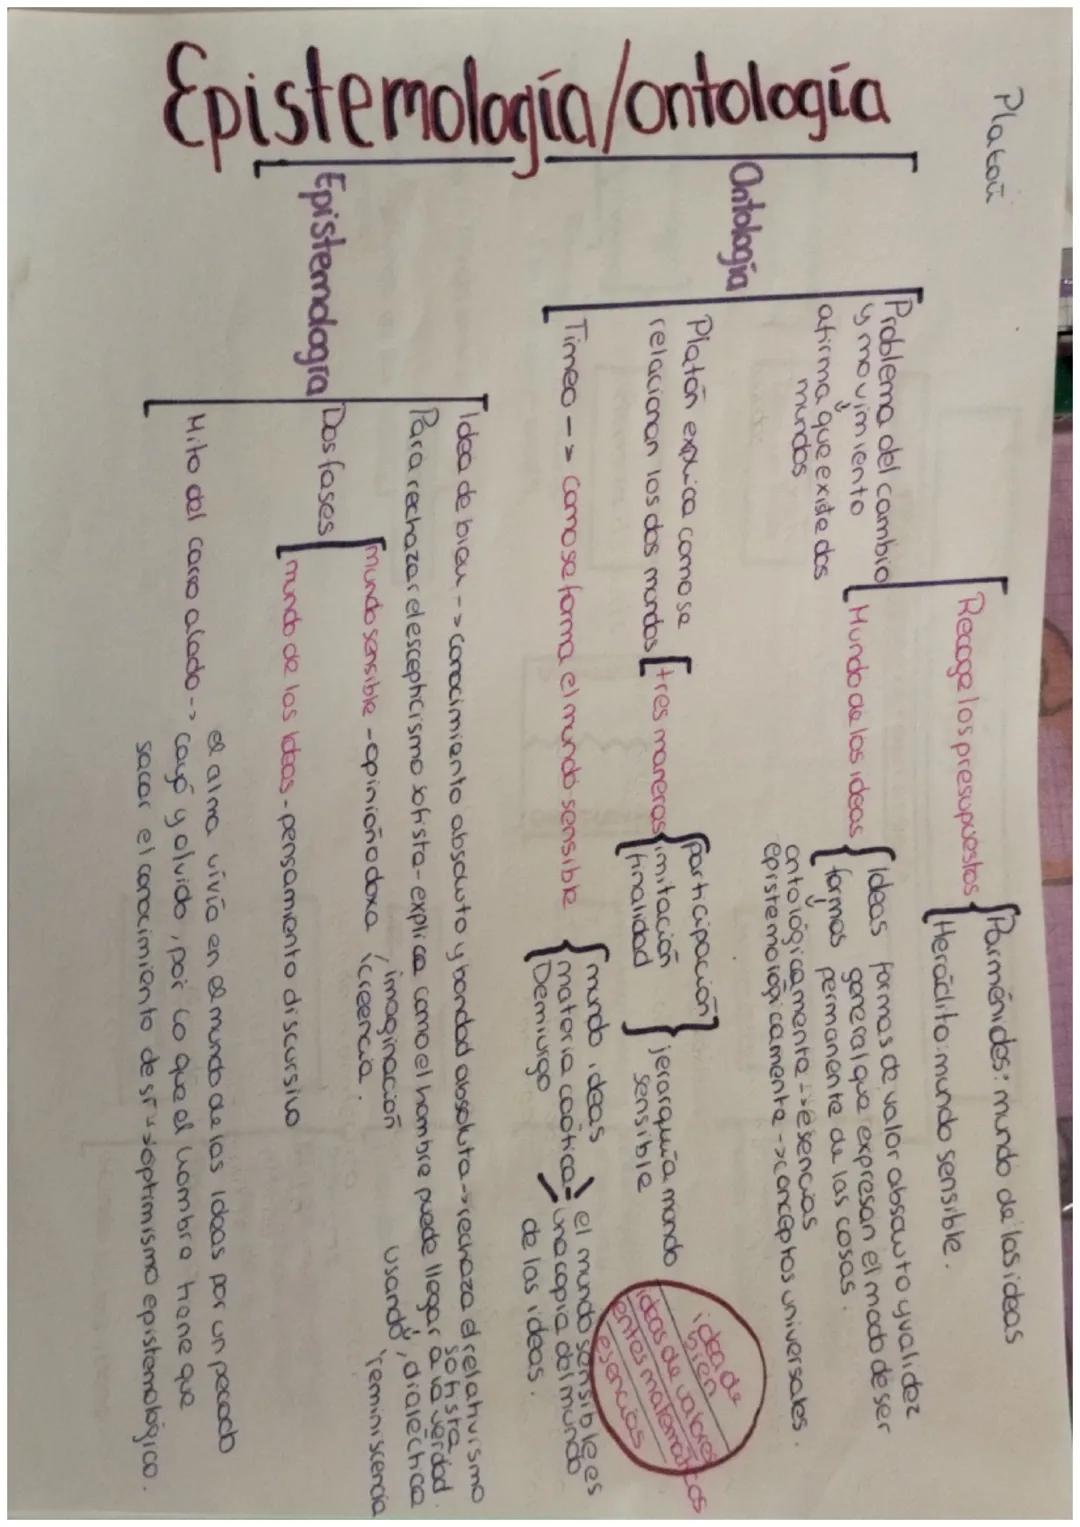 Platón
Epistemología/ontología
Ontología
Problema del cambio
y movimiento
afirma que existe dos
mundos
Recoge los presupuestos
Parménides: mundo de las ideas
Heráclito: mundo sensible.
Mundo de las ideas
Ideas
formas
formas de valor absouto y validez
general que expresan el modo de ser
permanente de las cosas.
ontológicamente -> esencias
epistemológicamente -> conceptos universales.
Platón explica como se
relacionan los dos mundos
tres maneras
participación
imitación
finalidad
jerarquía mundo
sensible
idea de
bien
ideas de valores
entes matemáticos
esencias
Timeo -> como se forma el mundo sensible
mundo ideas
materia caótica
Demiurgo
el mundo sensible es
una copia del mundo
de las ideas.
Epistemología
Idea de bien -> conocimiento absouto y bondad absoluta -> rechaza el relativismo
sofista
Para rechazar el escepticismo sofista - explica como el hombre puede llegar a la verdad.
usando, dialéctica
reminiscencia
Dos fases
mundo sensible - opinión o doxa
imaginación
creencia.
mundo de las ideas - pensamiento discursivo
Mito del carro alado ->
el alma vivía en el mundo de las ideas por un pecado
cayó y olvido, por lo que el hombre tiene que
sacar el conocimiento de sí -> optimismo epistemológico.